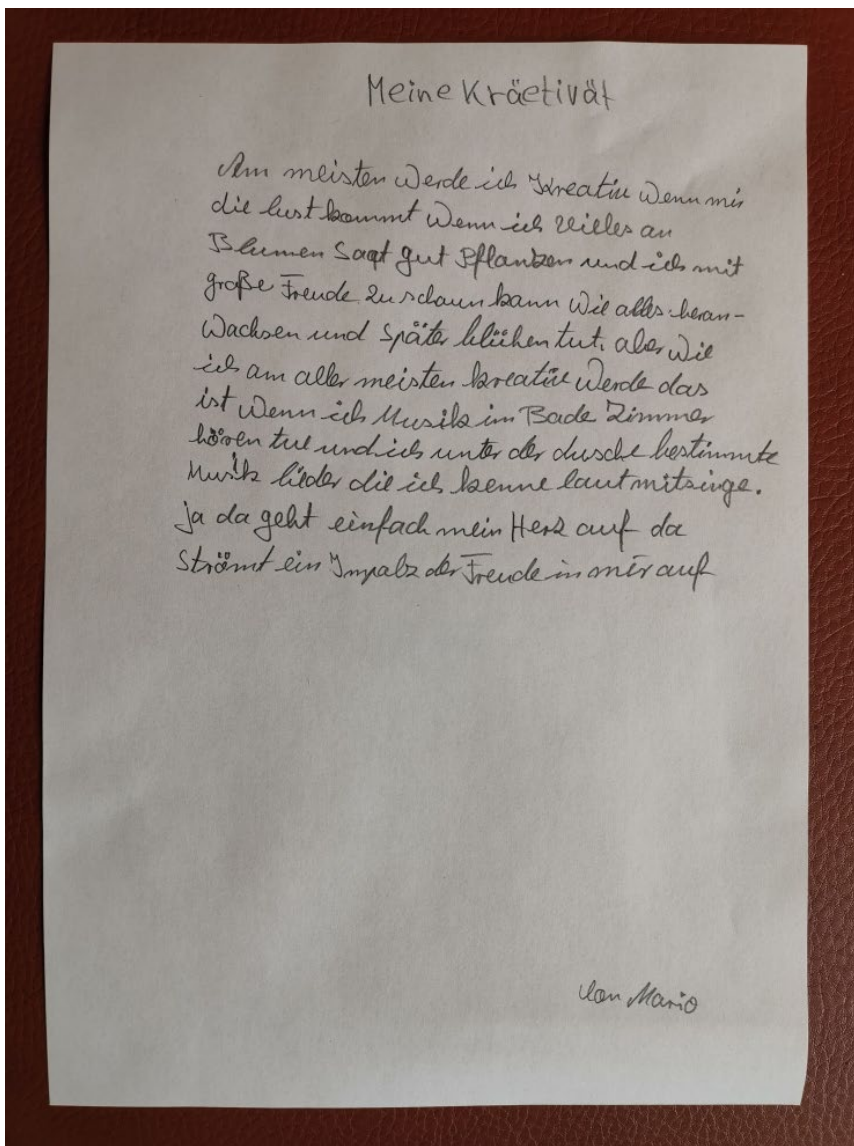 Meine Kräetivät
Am meisten Werde ich Kreativ Wenn mir
die lust kommt Wenn ich Vieles an
Blumen Saat gut Pflanzen und ich mit
große Freude zu schaun kann Wie alles heran-
Wachsen und Später blühen tut, aber Wie
ich am aller meisten kreativ Werde das
ist Wenn ich Musik im Bade Zimmer
hören tue und ich unter der dusche bestimmte
Musik lieder die ich kenne laut mitsinge.
ja da geht einfach mein Herz auf da
Strömt ein Impulz der Freude in mir auf
Von Mario